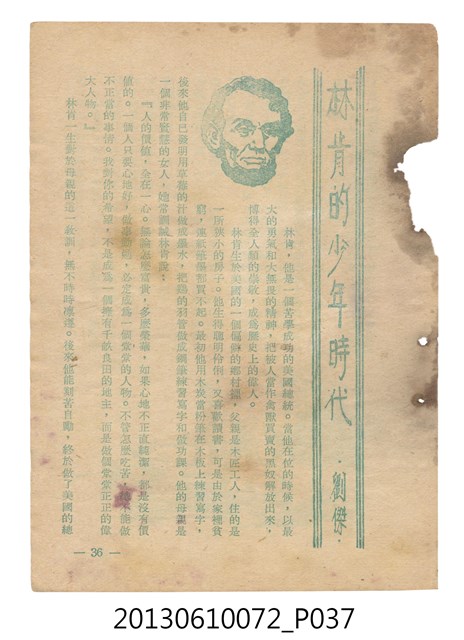 林肯的少年時代
·劉傑·
林肯，他是一個苦學成功的美國總統。當他在位的時候，以最
大的勇氣和大無畏的精神，把被人當作禽獸買賣的黑奴解放出來，
博得全人類的崇敬，成爲歷史上的偉人。
林肯生於美國的一個偏僻的鄉村裏，父親是木匠工人，住的是
一所狹小的房子。他生得聰明伶俐，又喜歡讀書，可是由於家裡貧
窮，連紙張筆都買不起。最初他用木炭當粉筆在木板上練習寫字，
後來他自己發明用草藥的汁做成藥水，把鷄的羽管做成鋼筆練習寫字和做功課。他的母親是
一個非常賢慧的女人，她常訓誡林肯說：
『人的價值，全在一心。無論怎麼富貴，多麼榮華，如果心地不正直純潔，都是沒有價
值的。一個人只要心地好，做事勤謹，必定成爲一個堂堂的人物。不管怎麼吃苦，總不能做
不正當的事情。我對你的希望，不是成爲一個擁有千畝良田的地主，而是做個堂堂正正的偉
大人物。』
林肯一生對於母親的這一敎訓，無不時時懍遵。後來他能刻苦自勵，終於做了美國的總
— 36 —
20130610072_P037